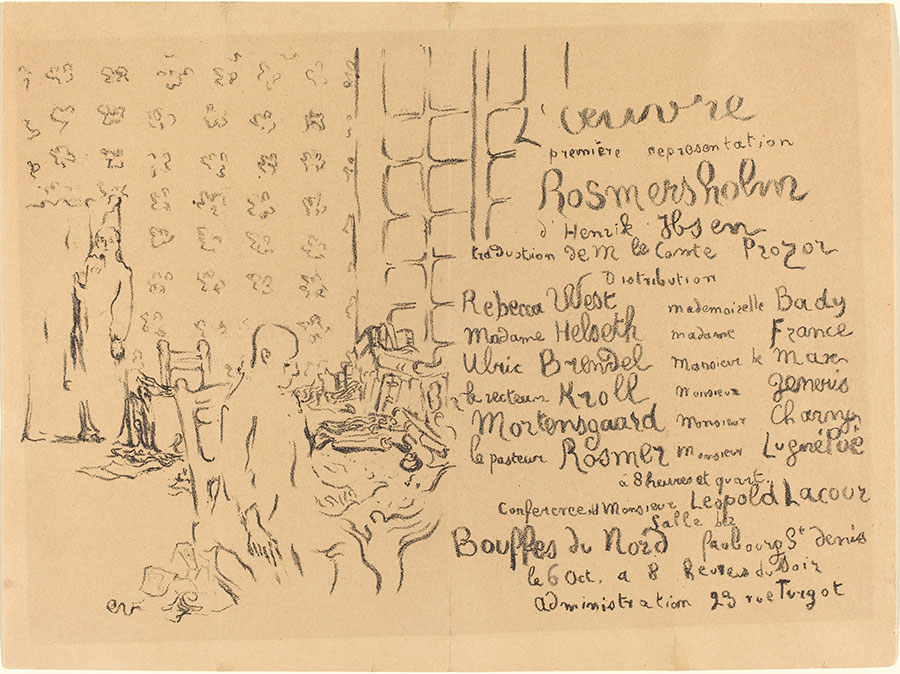 L'œuvre
première representation
Rosmersholm
d'Henrik Ibsen
traduction de M le Comte Prozor
Distribution
Rebecca West mademoiselle Bady
Madame Helseth madame France
Ulric Brendel Monsieur de Max
le recteur Kroll Monsieur
Mortensgaard Monsieur Charny
le pasteur Rosmer Monsieur Lugné Poë
à 8 heures et quart.
Conference d Monsieur Léopold Lacour
Salle des
Bouffes du Nord faubourg St denis
le 6 Oct. a 8 heures du Soir
administration 23 rue Turgot
ev